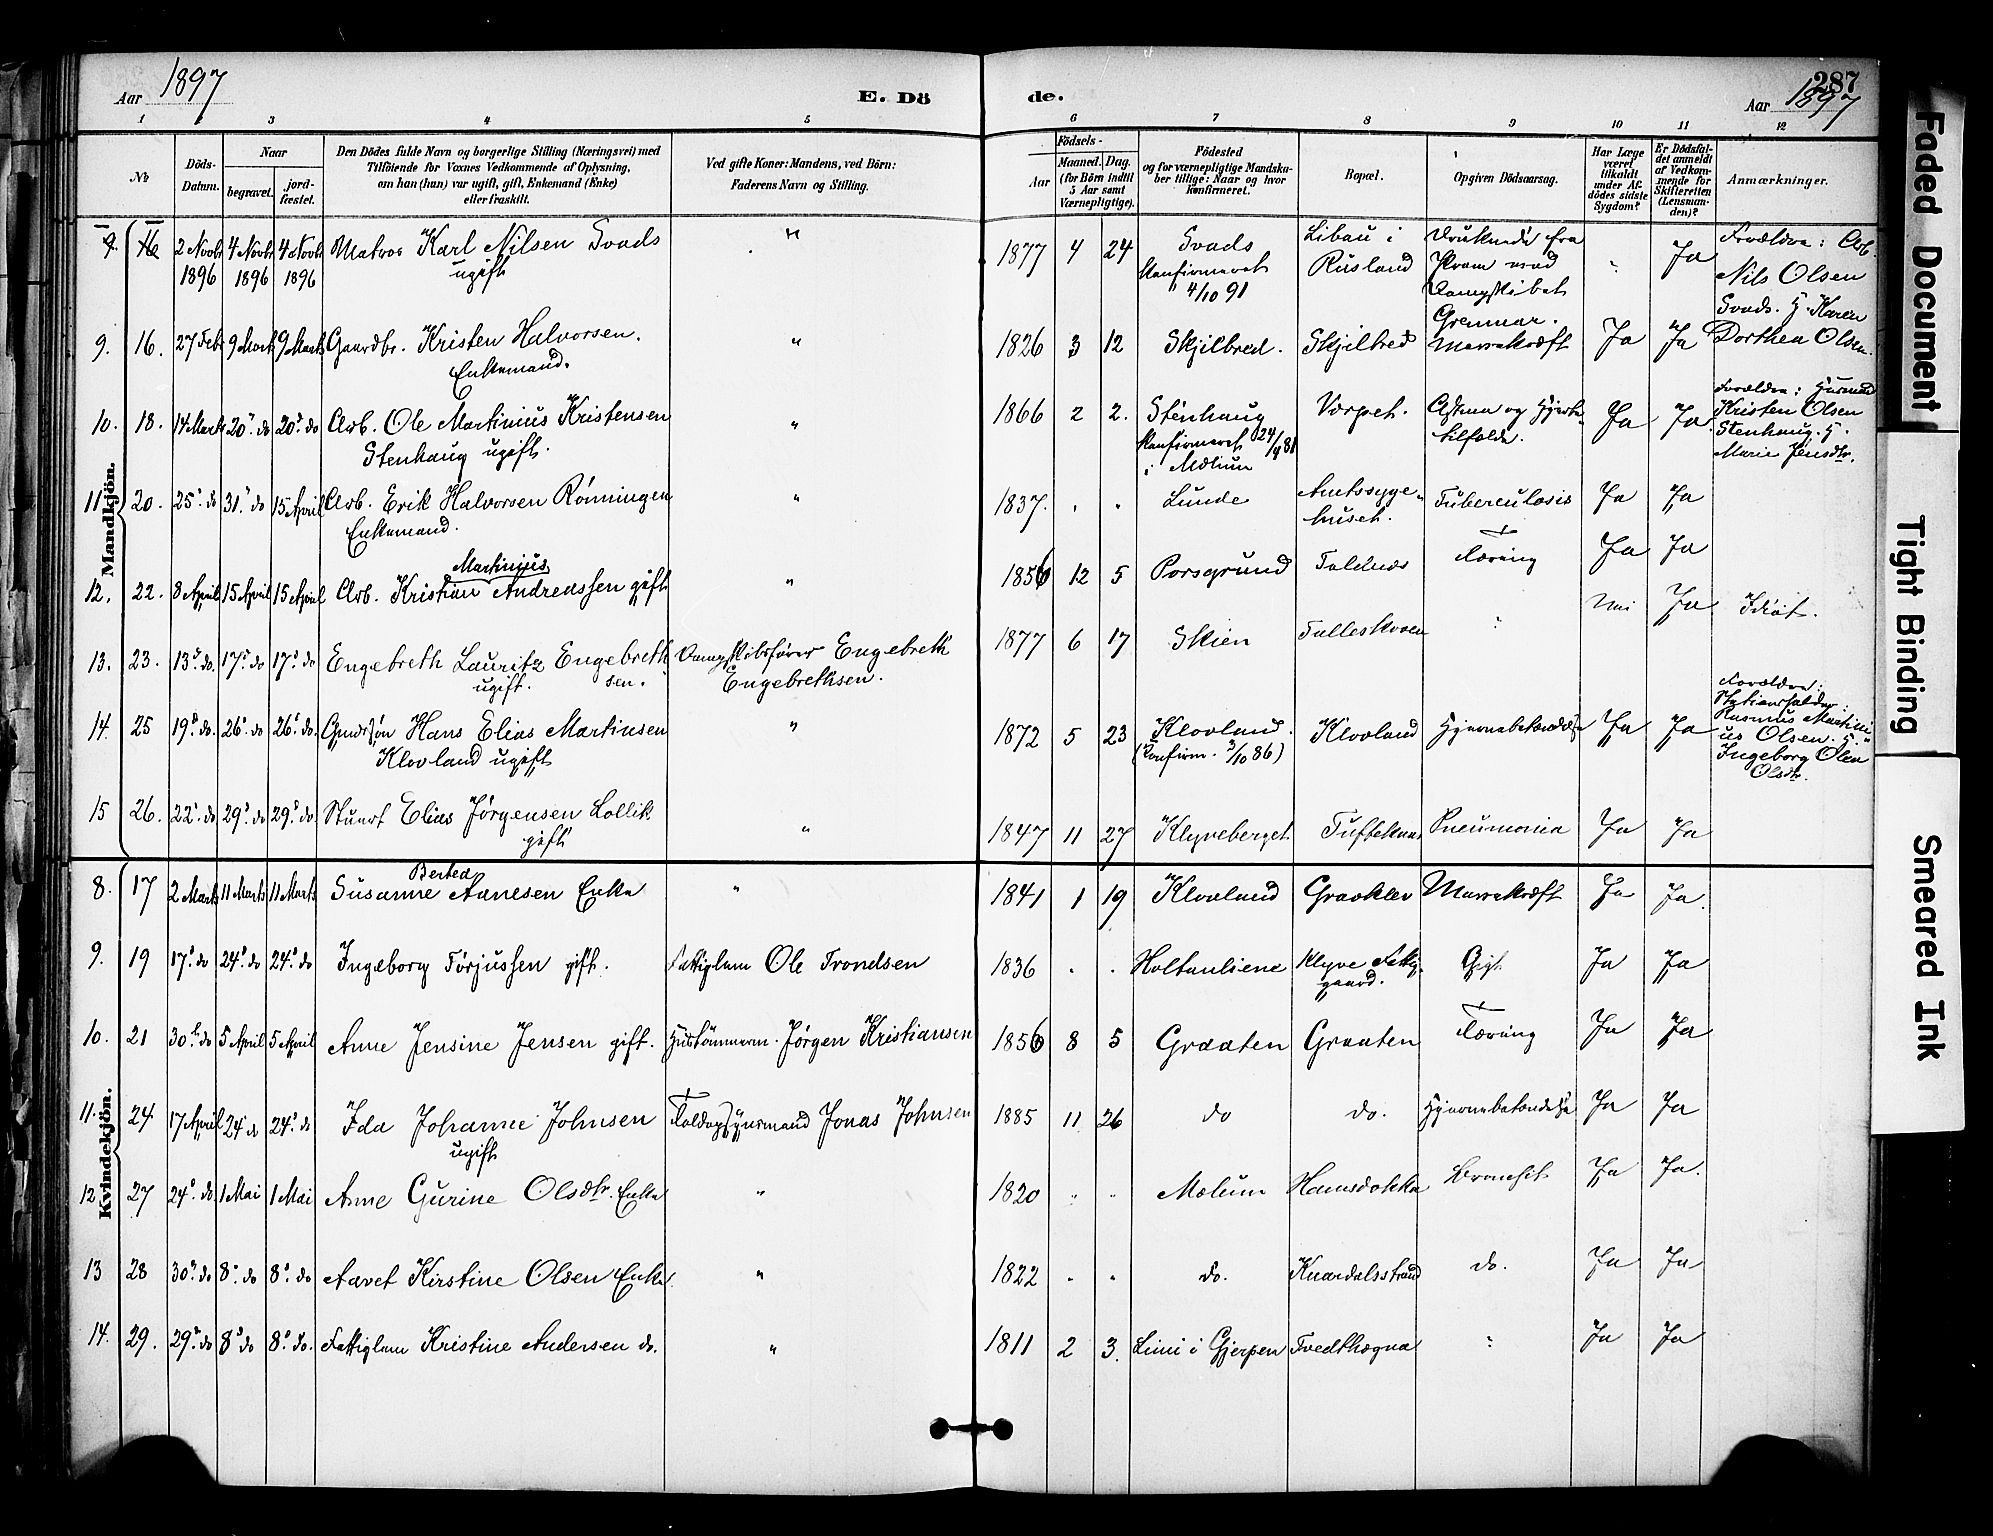 Aar 1897
E. Dö
de.
287
Aar 1897
1 2 3 4 5 6 7 8 9 10 11 12
No
Döds-
Datum.
Naar
begravet.
jord-
fæstet.
Den Dödes fulde Navn og borgerlige Stilling (Næringsvei) med
Tilföiende for Voxnes Vedkommende af Oplysning,
om han (hun) var ugift, gift, Enkemand (Enke)
eller fraskilt.
Ved gifte Koner: Mandens, ved Börn:
Faderens Navn og Stilling.
Födsels-
Aar
Maaned.
Dag.
(for Börn indtil
5 Aar samt
Værnepligtige).
Födested
og for værnepligtige Mandska-
ber tillige: Naar og hvor
konfirmeret.
Bopæl.
Opgiven Dödsaarsag.
Har Læge
været
tilkaldt
under Af-
dödes sidste
Sygdom?
Er Dödsfal-
det anmeldt
af Vedkom-
mende for
Skifteretten
(Lensman-
den)?
Anmærkninger.
Mandkjön.
2 Novb 1896 4 Novb 1896 4 Novb 1896 Matros Karl Nilsen Svads
ugift
" 1877 4 24 Svads
Konfirmeret
4/10 91
Libau i
Rusland
Druknede fra
Pram ved
Dampskibet
Grenmar.
" Ja Forældre: Arb.
Nils Olsen
Svads. H. Karen
Dorthea Olsen.
9. 16. 27 Feb 9 Marts 9 Marts Gaardbr. Kristen Halvorsen.
Enkemand.
" 1826 3 12 Skjilbred. Skjilbred Marrekræft Ja Ja
10. 18. 14 Marts 20 do 20 do Arb. Ole Martinius Kristensen
Stenhaug ugift.
" 1866 2 2. Stenhaug
Konfirmeret 24/4 81
i Mælum
Værpet. Astma og Hjerte-
tilfælde.
Ja Ja. Forældre: Husmand
Kristen Olsen
Stenhaug. H.
Marie Jensdtr.
11. 20. 25 do 31 do 15 April Arb. Erik Halvorsen Rönningen
Enkemand.
" 1837. " " Lunde Amtssyge-
huset.
Tuberculosis Ja Ja
12. 22. 8 April 15 April 15 April Arb. Kristian Martinius Andreassen gift " 1856 12 5 Porsgrund Faldnes Tæring Ja Ja
13. 23. 13 do. 17 do 17 do Engebreth Lauritz Engebreth
sen.
ugift.
Dampskibsfører Engebreth
Engebrethsen.
1877 6 17 Skien Tolleskoven " Nei Ja Idiot.
14. 25 19 do. 26 do 26 do. Gmdrsön Hans Elias Martinsen
Klovland ugift
" 1872 5 23 Klovland.
(Konfirm. 3/10 86)
Klovland Hjernebetændelse Ja Ja Forældre:
Rasmus Martini
us Olsen. H.
Ingeborg Olea
Olsdtr.
15 26. 22 do 29 do 29 do. Stuert Elias Jørgensen Lollik
gift
" 1847 11 27 Klyveberget Tufteknas Pneumonia Ja Ja
Kvindekjön.
8. 17 2 Marts 11 Marts 11 Marts Susanne Bertea Aanesen Enke " 1841 1 19 Klovland Graaklev Marrekræft Ja Ja.
9. 19 17 do 24 do 24 do Ingeborg Torjussen gift. Fattiglem Ole Trondsen 1836 " " Holtanliene Klyve Fattig-
gaard.
Gigt Ja Ja
10. 21 30 do 5 April 5 April Anne Jensine Jensen gift. Hustömmerm. Jörgen Kristiansen 1856 8 5 Graaten Graaten Tæring Ja Ja
11. 24 17 April 24 do 24 do Ida Johanne Johnsen
ugift
Husmand Jonas Johnsen 1885 11 26 do do. Hjernebetændelse Ja Ja
12 27 24 do. 1 Mai 1 Mai Anne Gurine Olsdtr. Enke " 1820 " " Mælum Hamsdokka Bronchit Ja Ja.
13 28 30 do 8 do 8 do Aavet Kirstine Olsen Enke " 1822 " " do. Knardalsstrand do. Ja Ja
14. 29. 29 do 8 do 8 do. Fattiglem Kristine Andersen do. " 1811 2 3. Limi i Gjerpen Tvedthægna " Ja Ja
Faded Document
Tight Binding
Smeared Ink